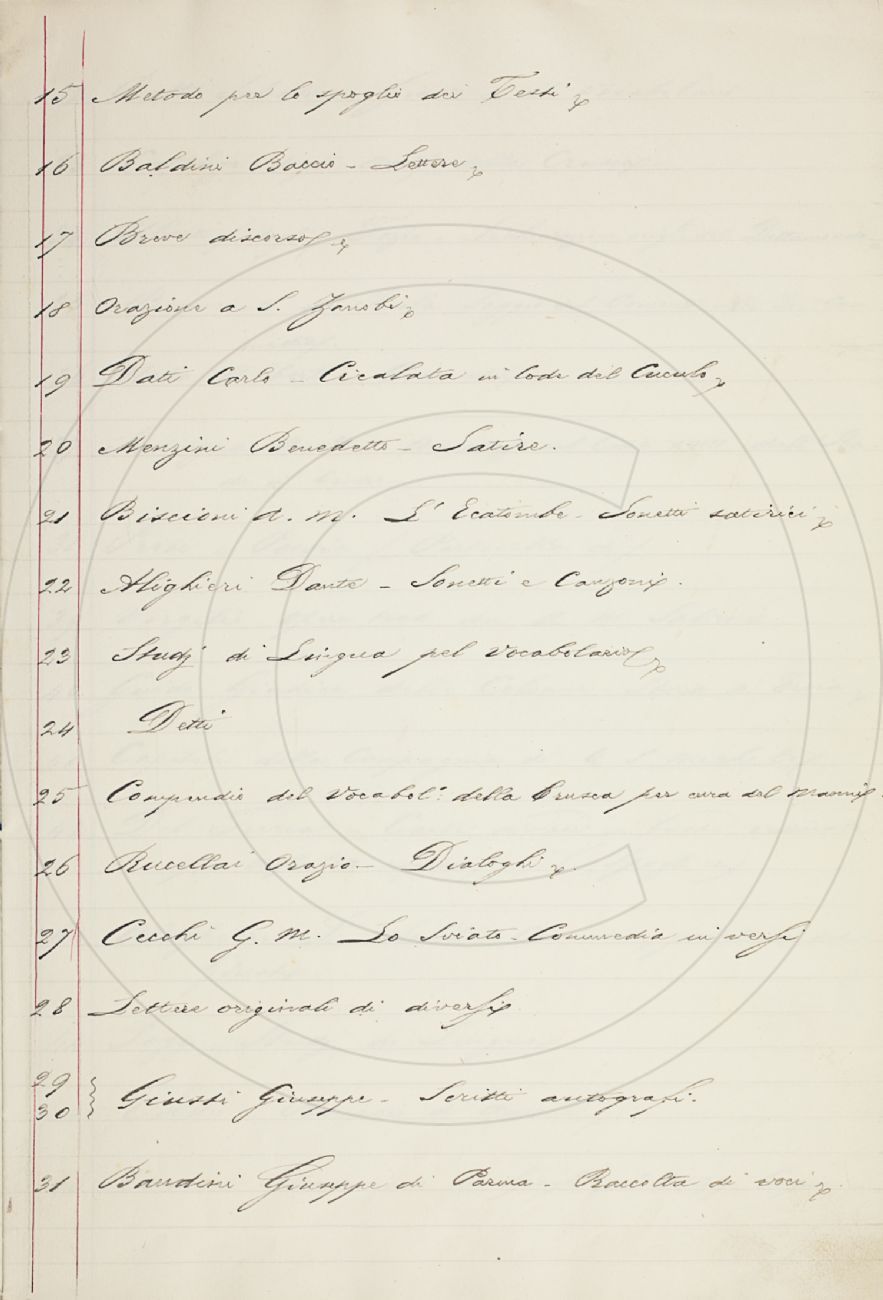 15 Metodo per lo spoglio dei Testi
16 Baldini Baccio - Lettere
17 Breve discorso
18 Orazione a S. Zanobi
19 Dati Carlo - Cicalata in lode del Cuculo
20 Menzini Benedetto - Satire.
21 Biscioni A. M. L' Ecatombe - Sonetti satirici
22 Alighieri Dante - Sonetti e Canzoni.
23 Studj di Lingua pel Vocabolario
24 Detti
25 Compendio del Vocabol.º della Crusca per cura del Manni
26 Rucellai Orazio - Dialoghi
27 Cecchi G. M. Lo Sviato - Commedia in versi
28 Lettere originali di diversi
29
30 Giusti Giuseppe - Scritti autografi.
31 Bandini Giuseppe di Parma - Raccolta di voci